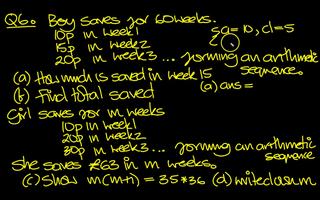 Q6. Boy saves for 60 weeks.
10p in week 1
15p in week 2
20p in week 3 ... forming an arithmetic sequence.
a=10, d=5
(a) How much is saved in week 15
(a) ans =
(b) Find total saved
girl saves for m weeks
10p in week 1
20p in week 2
30p in week 3 ... forming an arithmetic sequence
She saves £63 in m weeks.
(c) Show m(m+1) = 35*36 (d) write down m